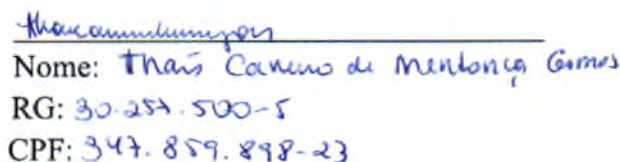 Nome: Thais Carneiro de Mendonça Gomes
RG: 30.257.500-5
CPF: 347.859.898-23